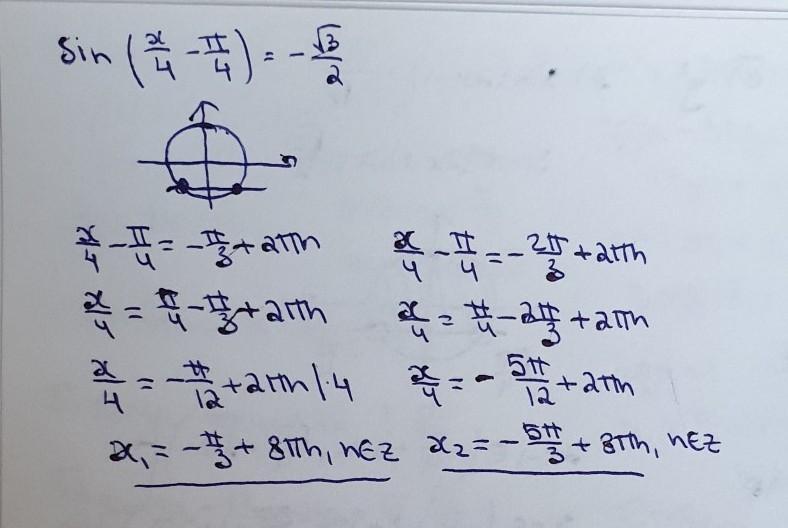 sin (x/4 - π/4) = - √3/2
x/4 - π/4 = - π/3 + 2πn
x/4 = π/4 - π/3 + 2πn
x/4 = - π/12 + 2πn |·4
x₁ = - π/3 + 8πn, n∈Z
x/4 - π/4 = - 2π/3 + 2πn
x/4 = π/4 - 2π/3 + 2πn
x/4 = - 5π/12 + 2πn
x₂ = - 5π/3 + 8πn, n∈Z